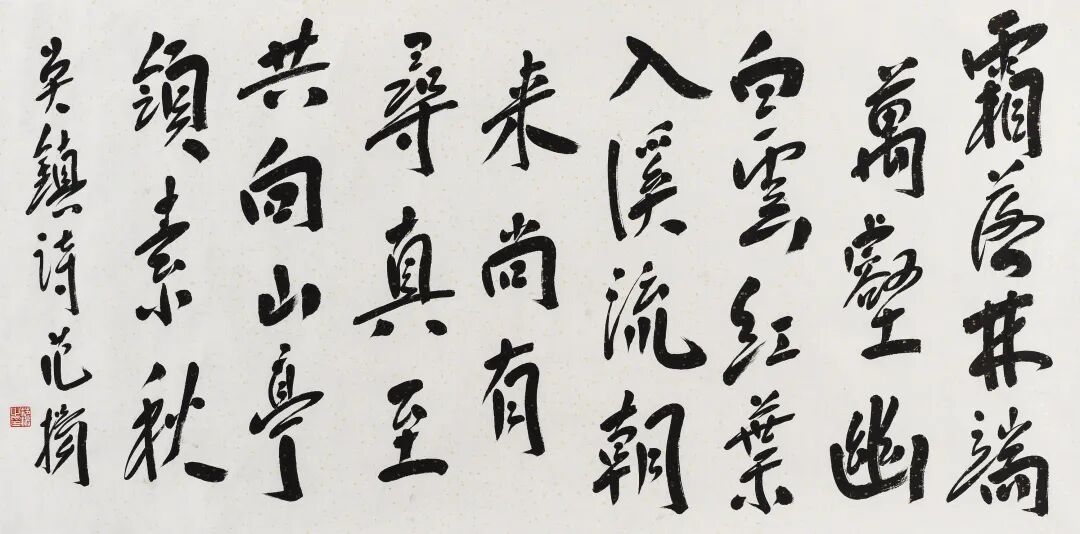 霜落林端
萬壑幽
白雲紅葉
入溪流朝
来尚有
尋真至
共向山亭
領素秋
吴鎮詩范